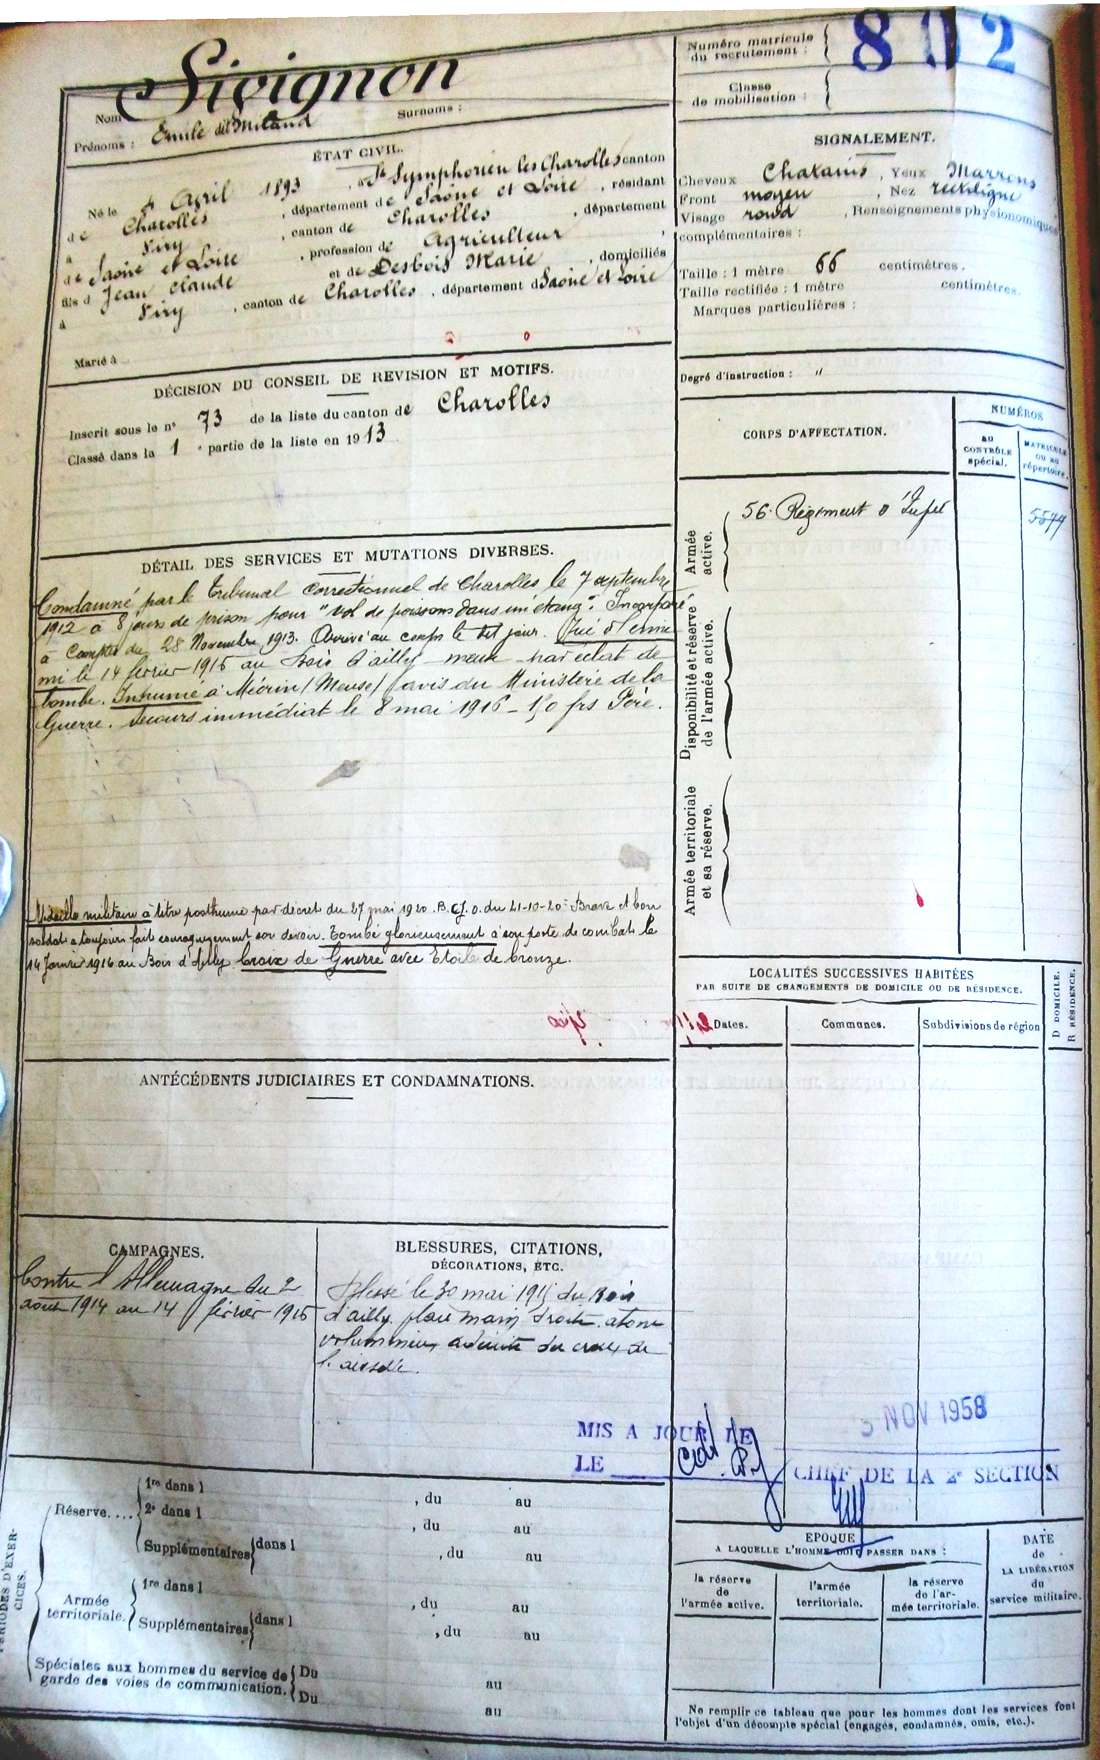 Numéro matricule
du recrutement :
802
Classe
de mobilisation :
Nom Sivignon
Prénoms : Emile dit Surnoms :
ÉTAT CIVIL.
Né le 4 Avril 1893, à St Symphorien les Charolles canton
de Charolles, département de Saône et Loire, résidant
à Viry, canton de Charolles, département
de Saône et Loire, profession de Agriculteur,
fils d Jean Claude et de Desbois Marie, domiciliés
à Viry, canton de Charolles, département d Saône et Loire
Marié à
DÉCISION DU CONSEIL DE REVISION ET MOTIFS.
Inscrit sous le n° 73 de la liste du canton de Charolles
Classé dans la 1 e partie de la liste en 1913
DÉTAIL DES SERVICES ET MUTATIONS DIVERSES.
Condamné par le Tribunal correctionnel de Charolles le 7 septembre
1912 à 8 jours de prison pour "vol de poissons dans un étang". Incorporé
à compter du 28 Novembre 1913. Arrivé au corps le dit jour. Tué à l'enne-
mi le 14 février 1916 au bois d'ailly par éclat de
bombe. Inhumé à Mécrin (Meuse) (avis du Ministère de la
Guerre. Secours immédiat le 8 mai 1916 - 150 frs Père.
Médaille militaire à titre posthume par décret du 27 mai 1920. J.O. du 21-10-20 : Brave et bon
soldat a toujours fait courageusement son devoir. Tombé glorieusement à son poste de combat le
14 Janvier 1916 au Bois d'Ailly Croix de Guerre avec Etoile de bronze.
ANTÉCÉDENTS JUDICIAIRES ET CONDAMNATIONS.
CAMPAGNES.
Contre l'Allemagne du 2
août 1914 au 14 février 1916
BLESSURES, CITATIONS,
DÉCORATIONS, ETC.
Blessé le 30 mai 1915 au Bois
d'ailly plaie main droite
SIGNALEMENT.
Cheveux Chatains, Yeux Marrons
Front moyen, Nez rectiligne
Visage rond, Renseignements physionomiques
complémentaires :
Taille : 1 mètre 66 centimètres.
Taille rectifiée : 1 mètre centimètres.
Marques particulières :
Degré d'instruction : "
CORPS D'AFFECTATION.
NUMÉROS
AU CONTRÔLE spécial.
MATRICULE OU AU répertoire.
Armée active.
56e Régiment d'Infie
Disponibilité et réserve de l'armée active.
Armée territoriale et sa réserve.
LOCALITÉS SUCCESSIVES HABITÉES
PAR SUITE DE CHANGEMENTS DE DOMICILE OU DE RÉSIDENCE.
D DOMICILE.
R RÉSIDENCE.
Dates.
Communes.
Subdivisions de région
NOV 1958
MIS A JOUR LE
LE
CHEF DE LA 2e SECTION
PÉRIODES D'EXERCICES.
Réserve....
1re dans l , du au
2e dans l , du au
Supplémentaires dans l , du au
Armée territoriale.
1re dans l , du au
Supplémentaires dans l , du au
Spéciales aux hommes du service de
garde des voies de communication.
Du au
Du au
EPOQUE
A LAQUELLE L'HOMME DOIT PASSER DANS :
la réserve de l'armée active.
l'armée territoriale.
la réserve de l'armée territoriale.
DATE
de
LA LIBÉRATION
du
service militaire.
Ne remplir ce tableau que pour les hommes dont les services font
l'objet d'un décompte spécial (engagés, condamnés, omis, etc.).